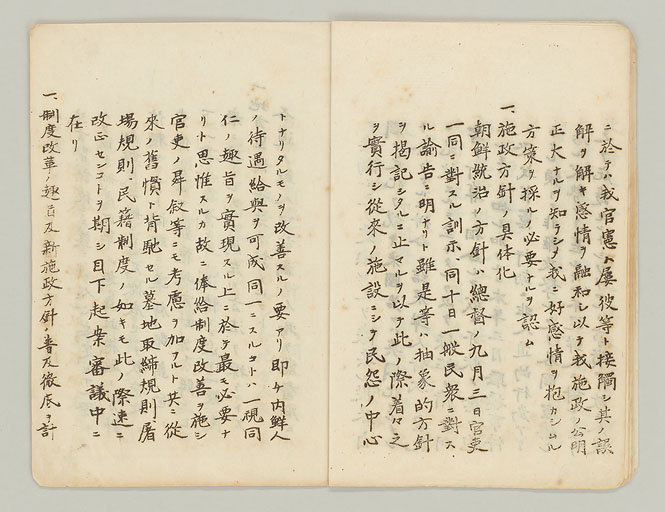 ニ於テハ我官憲ハ屡彼等ト接觸シ其ノ誤
解ヲ解キ感情ヲ融和シ以テ我施政ノ公明
正大ナルヲ知ラシメ我ニ好感情ヲ抱カシムル
方策ヲ採ルノ必要ナルヲ認ム
一、施政方針ノ具体化
朝鮮統治ノ方針ハ總督ノ九月三日官吏
一同ニ對スル訓示、同十日一般民衆ニ對ス
ル諭告ニ明ナリト雖是等ハ抽象的方針
ヲ掲記シタルニ止マルヲ以テ此ノ際着々之
ヲ實行シ從來ノ施設ニシテ民怨ノ中心
トナリタルモノヲ改善スルノ要アリ即チ内鮮人
ノ待遇給與ヲ可成同一ニスルコトハ一視同
仁ノ趣旨ヲ實現スル上ニ於テ最モ必要ナ
リト思惟スルカ故ニ俸給制度改善ヲ施シ
官吏ノ昇敘等ニモ考慮ヲ加フルト共ニ從
來ノ舊慣ト背馳セル墓地取締規則屠
場規則民籍制度ノ如キモ此ノ際速ニ
改正センコトヲ期シ目下起案審議中ニ
在リ
一、制度改革ノ趣旨及新施政方針ノ普及徹底ヲ計